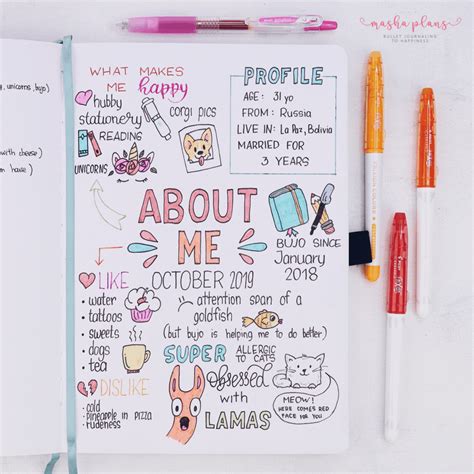 masha plans
BULLET JOURNALING
TO HAPPINESS
, unicorns, bujo)
with cheese)
WHAT MAKES
ME happy
hubby
stationery
READING
UNICORNS
corgi pics
PROFILE
AGE: 31 yo
FROM: Russia
LIVE IN: La Paz, Bolivia
MARRIED FOR
3 YEARS
ABOUT
ME
BUJO SINCE
January
2018
OCTOBER 2019
LIKE
• water
• tattoos
• sweets
• dogs
• tea
attention span of a
goldfish
(but bujo is helping me to do better)
SUPER ALLERGIC
TO CATS
DISLIKE
• cold
• pineapple in pizza
• rudeness
Obsessed
with
LAMAS
MEOW!
HERE COMES RED
FACE FOR YOU